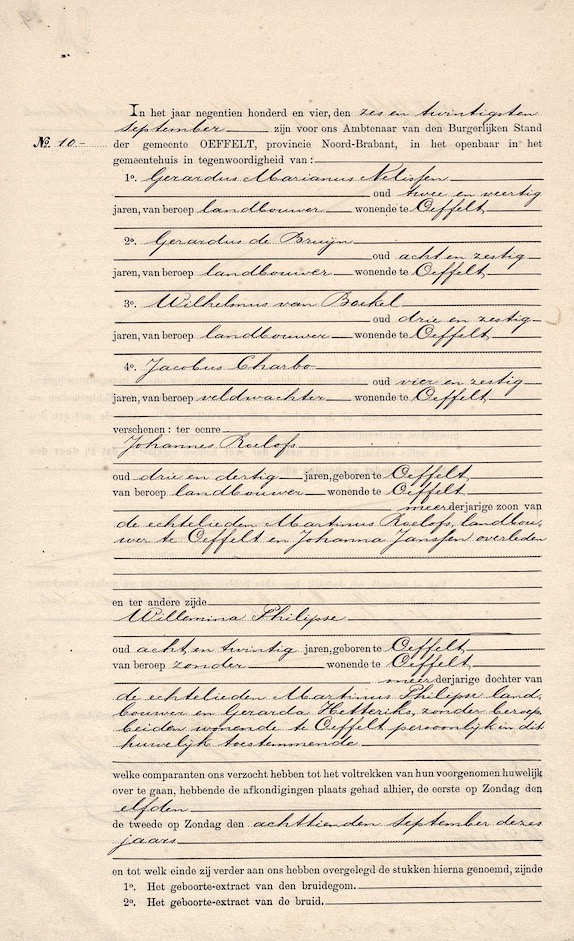 In het jaar negentien honderd en vier, den zes en twintigsten
september zijn voor ons Ambtenaar van den Burgerlijken Stand
No. 10 der gemeente OEFFELT, provincie Noord-Brabant, in het openbaar in het
gemeentehuis in tegenwoordigheid van :
1o. Gerardus Marianus Nelissen
oud twee en veertig
jaren, van beroep landbouwer wonende te Oeffelt
2o. Gerardus de Bruijn
oud acht en zestig
jaren, van beroep landbouwer wonende te Oeffelt
3o. Wilhelmus van Boekel
oud drie en zestig
jaren, van beroep landbouwer wonende te Oeffelt
4o. Jacobus Charbo
oud vier en zestig
jaren, van beroep veldwachter wonende te Oeffelt
verschenen : ter eenre
Johannes Roelofs
oud drie en dertig jaren, geboren te Oeffelt
van beroep landbouwer wonende te Oeffelt
meerderjarige zoon van
de echtelieden Martinus Roelofs, landbou-
wer te Oeffelt en Johanna Janssen overleden
en ter andere zijde
Willemina Philipse
oud acht en twintig jaren, geboren te Oeffelt
van beroep zonder wonende te Oeffelt
meerderjarige dochter van
de echtelieden Martinus Philipse land-
bouwer en Gerarda Hetteriks, zonder beroep
beiden wonende te Oeffelt persoonlijk in dit
huwelijk toestemmende
welke comparanten ons verzocht hebben tot het voltrekken van hun voorgenomen huwelijk
over te gaan, hebbende de afkondigingen plaats gehad alhier, de eerste op Zondag den
elfden
de tweede op Zondag den achttienden september dezes
jaars
en tot welk einde zij verder aan ons hebben overgelegd de stukken hierna genoemd, zijnde
1o. Het geboorte-extract van den bruidegom.
2o. Het geboorte-extract van de bruid.